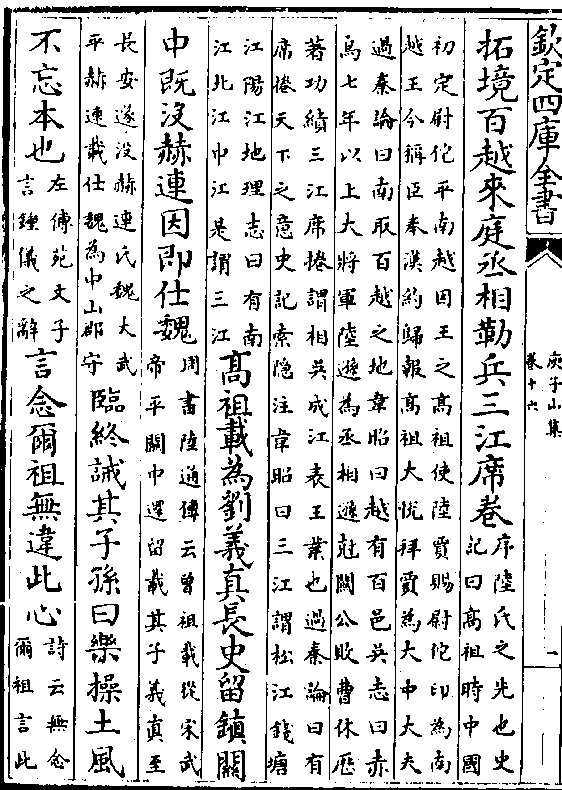 欽定四庫全書
庾子山集
卷十六
拓境百越來庭丞相勒兵三江席卷
序陸氏之先也史
記曰高祖時中國
初定尉佗平南越因王之高祖使陸賈賜尉佗印為南
越王令稱臣奉漢約歸報高祖大悅拜賈為大中大夫
過秦論曰南取百越之地韋昭曰越有百邑吳志曰赤
烏七年以上大將軍陸遜為丞相遜尅關公敗曹休歷
著功績三江席捲謂相吳成江表王業也過秦論曰有
席捲天下之意史記索隐注韋昭曰三江謂松江錢塘
江陽江地理志曰有南
江北江中江是謂三江
高祖載為劉義真長史留鎮關
中既沒赫連因即仕魏
周書陸通傳云曾祖載從宋武
帝平關中還留載其子義真至
長安遂沒赫連氏魏大武
平赫連載仕魏為中山郡守
臨終誡其子孫曰樂操土風
不忘本也
左傳范文子
言鍾儀之辭
言念爾祖無違此心
詩云無念
爾祖言此